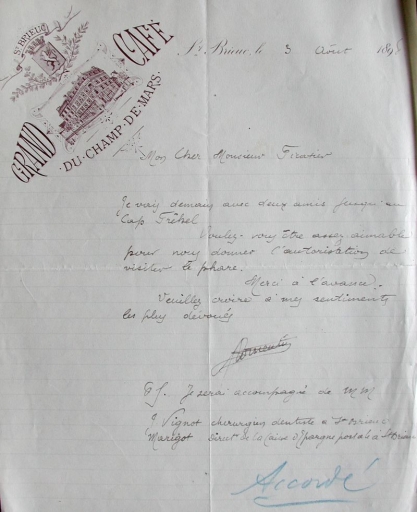 St BRIEUC
GRAND CAFÉ
DU·CHAMP·DE·MARS·
St Brieuc, le 3 Août 189
Mon Cher Monsieur
Je vais demain avec deux amis jusqu'au
Cap Fréhel
Voulez-vous être assez aimable
pour nous donner l'autorisation de
visiter le phare.
Merci à l'avance.
Veuillez croire à mes sentiments
les plus dévoués
PS. Je serai accompagné de MM
Vignot chirurgien dentiste à St Brieuc
Marigot Direct de la Caisse d'Epargne postale à St Brieuc
Accordé